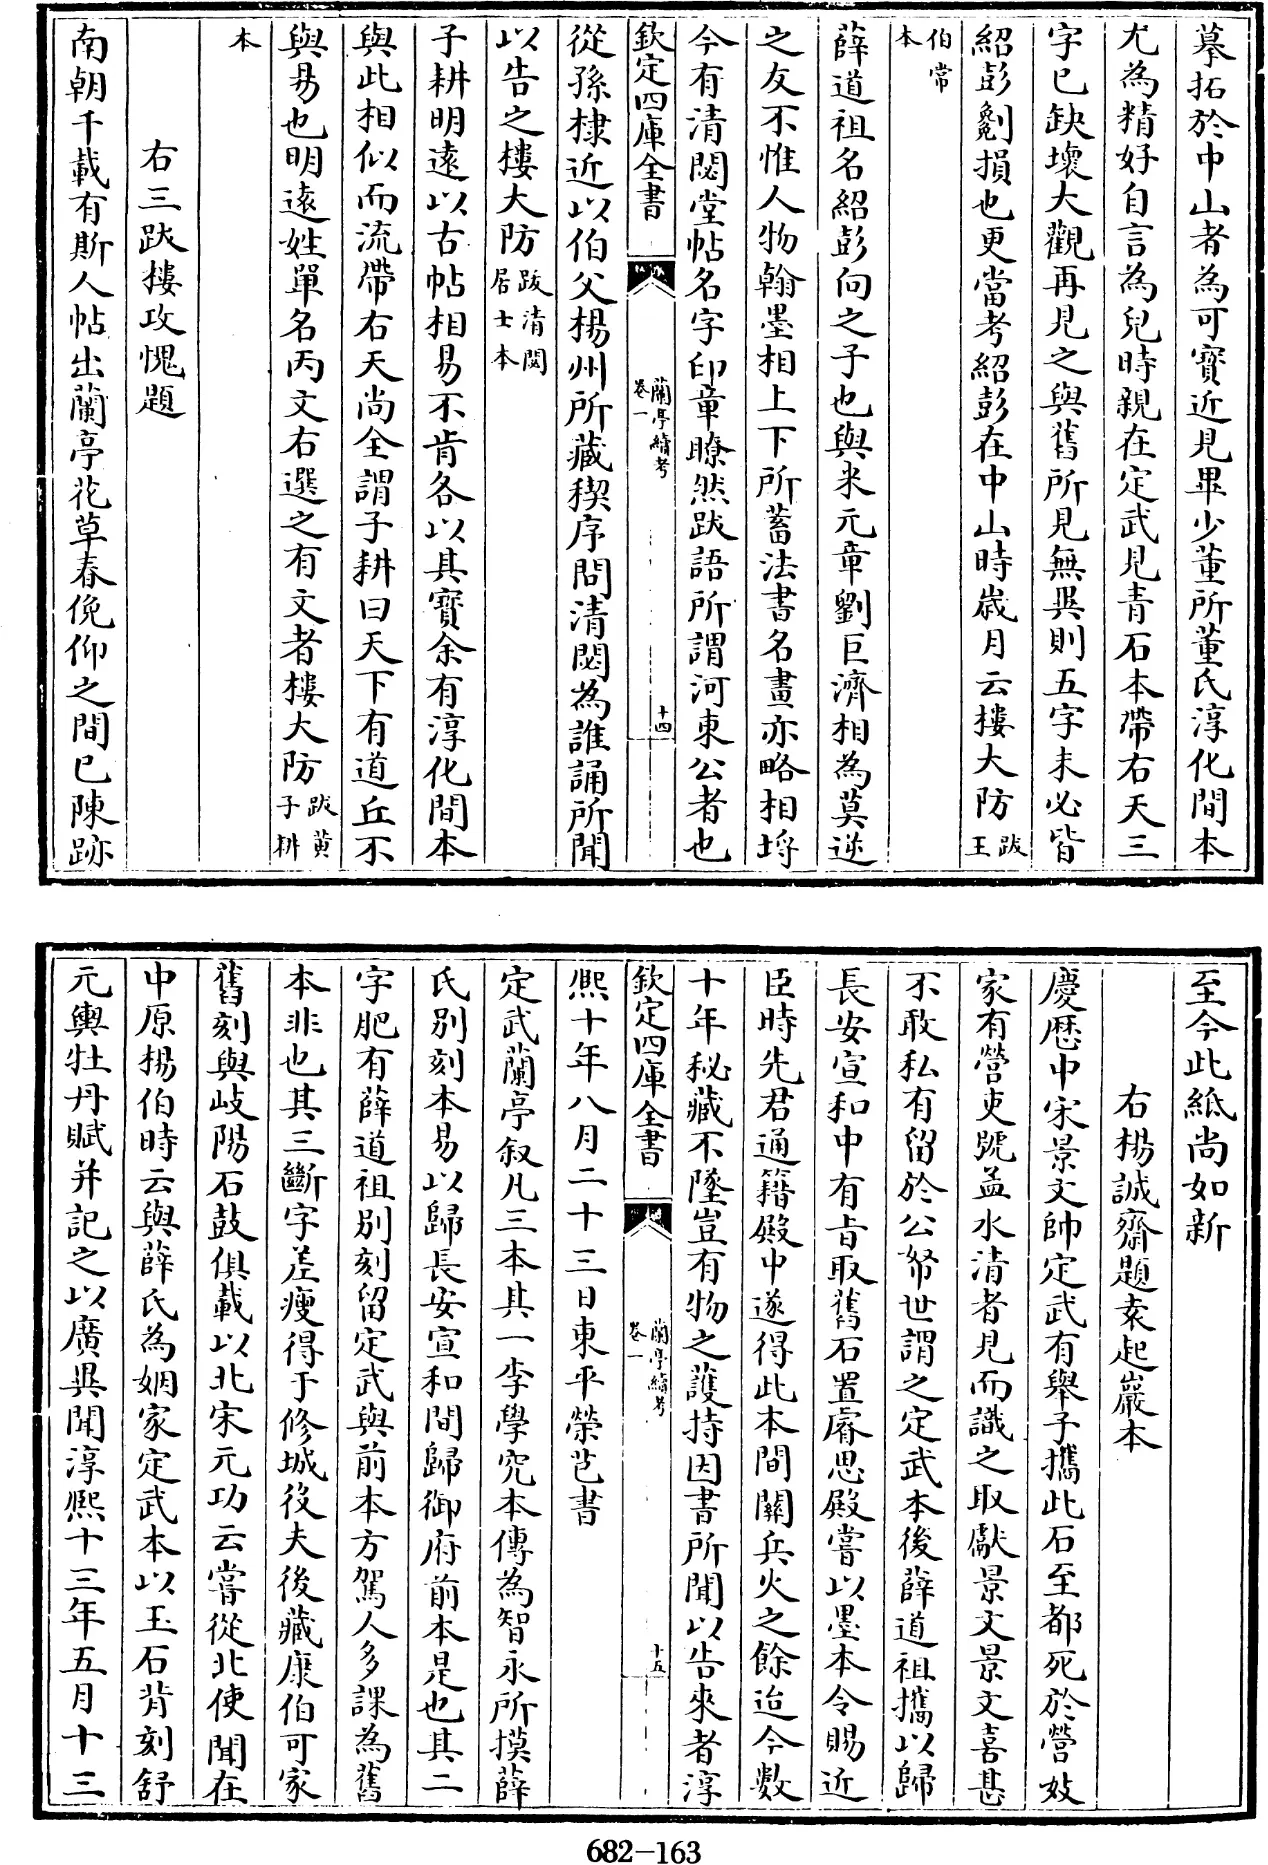 摹拓於中山者為可寳近見畢少董所董氏淳化間本
尤為精好自言為兒時親在定武見青石本帶右天三
字已缺壞大觀再見之與舊所見無異則五字未必皆
紹彭劖損也更當考紹彭在中山時歲月云樓大防跋王
伯常本
薛道祖名紹彭向之子也與米元章劉巨濟相為莫逆
之友不惟人物翰墨相上下所蓄法書名畫亦略相埒
今有清閟堂帖名字印章瞭然跋語所謂河東公者也
欽定四庫全書
蘭亭續考
卷一
十四
從孫棣近以伯父楊州所藏稧序問清閟為誰誦所聞
以告之樓大防跋清閟居士本
子耕明遠以古帖相易不肯各以其寳余有淳化間本
與此相似而流帶右天尚全謂子耕曰天下有道丘不
與易也明遠姓單名丙文右選之有文者樓大防跋黄子耕
本
右三跋樓攻愧題
南朝千載有斯人帖出蘭亭花草春俛仰之間已陳跡
至今此紙尚如新
右楊誠齋題袁起巖本
慶歷中宋景文帥定武有舉子攜此石至都死於營妓
家有營吏號孟水清者見而識之取獻景文景文喜甚
不敢私有留於公帑世謂之定武本後薛道祖攜以歸
長安宣和中有旨取舊石置睿思殿嘗以墨本令賜近
臣時先君通籍殿中遂得此本間關兵火之餘迨今數
十年秘藏不墜豈有物之護持因書所聞以告來者淳
欽定四庫全書
蘭亭續考
卷一
十五
熈十年八月二十三日東平榮芑書
定武蘭亭叙凡三本其一李學究本傳為智永所摸薛
氏别刻本易以歸長安宣和間歸御府前本是也其二
字肥有薛道祖别刻留定武與前本方駕人多課為舊
本非也其三斷字差瘦得于修城役夫後藏康伯可家
舊刻與岐陽石鼓俱載以北宋元功云嘗從北使聞在
中原楊伯時云與薛氏為姻家定武本以玉石背刻舒
元輿牡丹賦并記之以廣異聞淳熈十三年五月十三
682-163